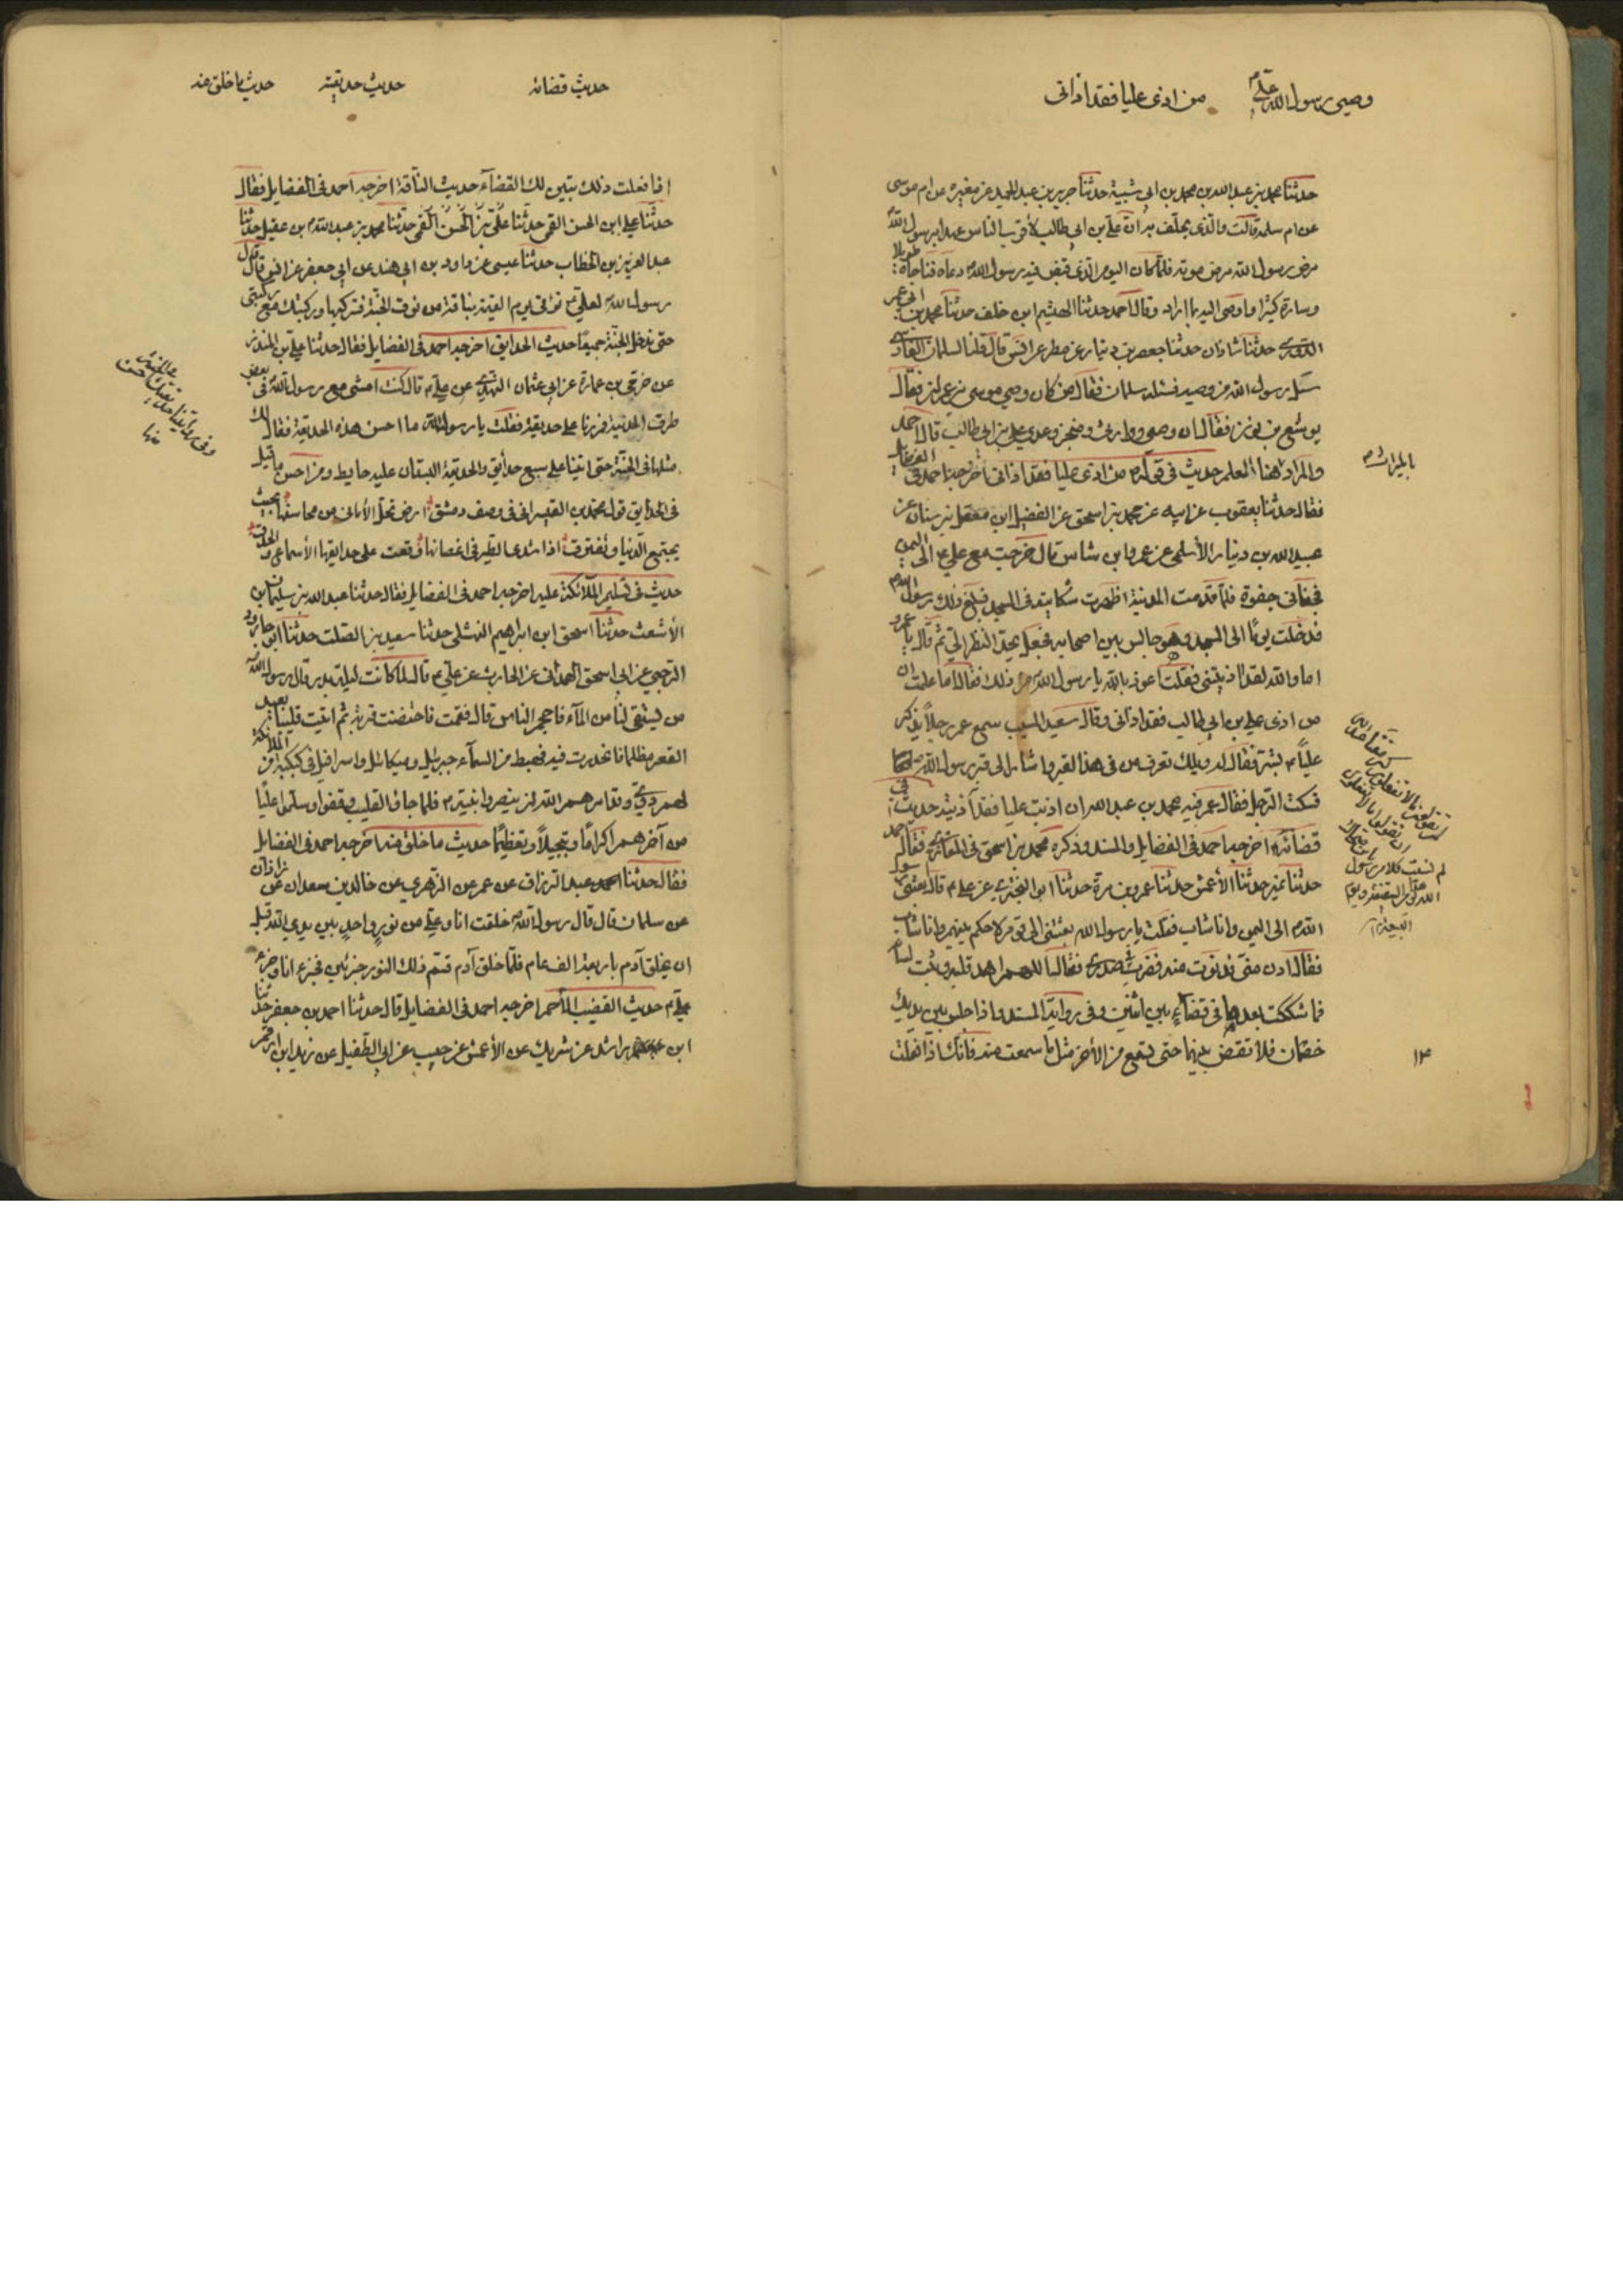 وصي رسول الله علي من اذى عليا فقد اذانى
حدثنا محمد بن عبد الله بن محمد بن ابى شيبة حدثنا جرير بن عبد الحميد عن مغيرة عن ام موسى
عن ام سلمة قالت والذى يحلف به ان على بن ابى طالب لاقرب الناس عهدا برسول الله
مرض رسول الله مرض موته فلما كان اليوم الذى قبض فيه رسول الله دعاه فناجاه طويلا
وساره كثيرا واوصى اليه بما اراد وقال احمد حدثنا الهيثم ابن خلف حدثنا محمد بن ابى عمر
الدورى حدثنا شاذان حدثنا جعفر بن دينار عن مطر عن انس قال قلنا لسلمان الفارسى
سل رسول الله من وصيه فسئله سلمان فقال من كان وصي موسى بن عمران فقال
يوشع بن نون فقال ان وصيى ووارثى ومنجز وعدى على بن ابى طالب قال احمد
والمراد هنا العلم حديث فى قوله من اذى عليا فقد اذانى اخرجه احمد فى الفضايل
بالميراث
فقال حدثنا يعقوب عن ابيه عن محمد بن اسحق عن الفضيل ابن معقل بن سنان عن
عبد الله بن دينار الأسلمى عن عمرو ابن شاس قال خرجت مع على الى اليمن
فجفانى جفوة فلما قدمت المدينة اظهرت شكايته فى المسجد فبلغ ذلك رسول الله
فدخلت يوما الى المسجد وهو جالس بين اصحابه فجعل يحد النظر الى ثم قال يا عمرو
اما والله لقد اذيتنى فقلت اعوذ بالله يا رسول الله من ذلك فقال اما علمت ان
من اذى على بن ابى طالب فقد اذانى وقال سعيد المسيب سمع عمر رجلا يذكر
عليا بشر فقال له ويلك تعرف من فى هذا القبر واشار الى قبر رسول الله
فسكت الرجل فقال عمر فيه محمد بن عبد الله ان اذيت عليا فقد آذيته حديث فى
قضائه اخرجه احمد فى الفضايل والمسند وذكره محمد بن اسحق فى المغازى فقال احمد
حدثنا نمير حدثنا الأعمش حدثنا عمرو بن مرة حدثنا ابو البخترى عن على قال بعثنى رسول
الله الى اليمن وانا شاب فقلت يا رسول الله بعثتنى الى قوم لاحكم بينهم وانا شاب
فقال ادن منى فدنوت منه فضرب صدرى فقال اللهم اهد قلبه وثبت لسانه
فما شككت بعدها فى قضاء بين اثنين وفى رواية المسند واذا جلس بين يديك
خصمان فلا تقض بينهما حتى تسمع من الأخر مثل ما سمعت منه فانك اذا فعلت
١٣
حديث قضائه حديث حديقته حديث ما خلق منه
اذا فعلت ذلك تبين لك القضآء حديث الناقة اخرجه احمد فى الفضايل فقال
حدثنا على ابن الحسن القمى حدثنا على بن الحسن القمى حدثنا محمد بن عبد الله بن عقيل حدثنا
عبد العزيز بن الخطاب حدثنا عيسى عن داود بن ابى هند عن ابى جعفر عن انس قال قال
رسول الله لعلى تؤتى يوم القيمة بناقة من نوق الجنة فتركبها وركبتك مع ركبتى
حتى ندخل الجنة جميعا حديث الحدايق اخرجه احمد فى الفضايل فقال حدثنا على بن المنذر
عن حرمى بن عمارة عن ابى عثمان النهدى عن على قال كنت امشى مع رسول الله فى بعض
طرق المدينة فمررنا على حديقة فقلت يا رسول الله ما احسن هذه الحديقة فقال لك
مثلها فى الجنة حتى اتينا على سبع حدايق والحديقة البستان عليه حايط ومن احسن ما قيل
وفى رواية
منها
فى الحدايق قول محمد بن القيسرانى فى وصف دمشق ارض تحل الأمانى من محاسنها بحيث
يجتمع الدنيا وتفترق اذا شدا الطير فى اغصانها وقعت على حدايقها الأسماع والحدق
حديث فى تسليم الملائكة عليه اخرجه احمد فى الفضايل فقال حدثنا عبد الله بن سليمان بن
الأشعث حدثنا اسحق ابن ابراهيم النهشلى حدثنا سعيد بن الصلت حدثنا ابو جارود
الرحبى عن ابى اسحق الهمدانى عن الحارث عن على قال لما كانت ليلة بدر قال رسول الله
من يستقى لنا من المآء فاحجم الناس قال فقمت فاحتضنت قربة ثم اتيت قليبا بعيد
القعر مظلما فانحدرت فيه فهبط من السمآء جبرئيل وميكائيل واسرافيل فى كبكبة من الملائكة
لهم دوى وقد امرهم الله ان ينصروا نبيه فلما جاؤا القليب وقفوا وسلموا عليا
من آخرهم اكراما وتبجيلا وتعظيما حديث ما خلق منه اخرجه احمد فى الفضايل
فقال حدثنا عبد الرزاق عن معمر عن الزهرى عن خالد بن سعدان عن زاذان
عن سلمان قال قال رسول الله خلقت انا وعلى من نور واحد بين يدى الله قبل
ان يخلق آدم باربعة الف عام فلما خلق آدم قسم ذلك النور جزئين فجزء انا وجزء
على حديث القضيب الأحمر اخرجه احمد فى الفضايل قال حدثنا احمد بن جعفر حدثنا
ابن راشد عن شريك عن الأعمش عن حبيب عن ابى الطفيل عن زيد ابن ارقم